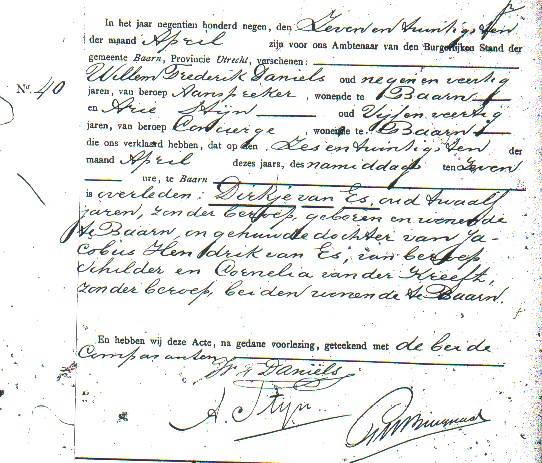 In het jaar negentien honderd negen, den Zeven en twintigsten
der maand April zijn voor ons Ambtenaar van den Burgerlijken Stand der
gemeente Baarn, Provincie Utrecht, verschenen:
Willem Frederik Daniels oud negen en veertig
No. 40 jaren, van beroep Aanspreker, wonende te Baarn
en Arie Stijn oud Vijf en veertig
jaren, van beroep Concierge, wonende te Baarn
die ons verklaard hebben, dat op den Zes en twintigsten der
maand April dezes jaars, des namiddags ten Zeven
ure, te Baarn
is overleden: Dirkje van Es, oud twaalf
jaren, zonder beroep, geboren en wonende
te Baarn, ongehuwde dochter van Ja-
cobus Hendrik van Es, van beroep
schilder en Cornelia van der Kreeft,
zonder beroep, beiden wonende te Baarn.
En hebben wij deze Acte, na gedane voorlezing, geteekend met de beide
Comparanten
Daniëls
A. Stijn